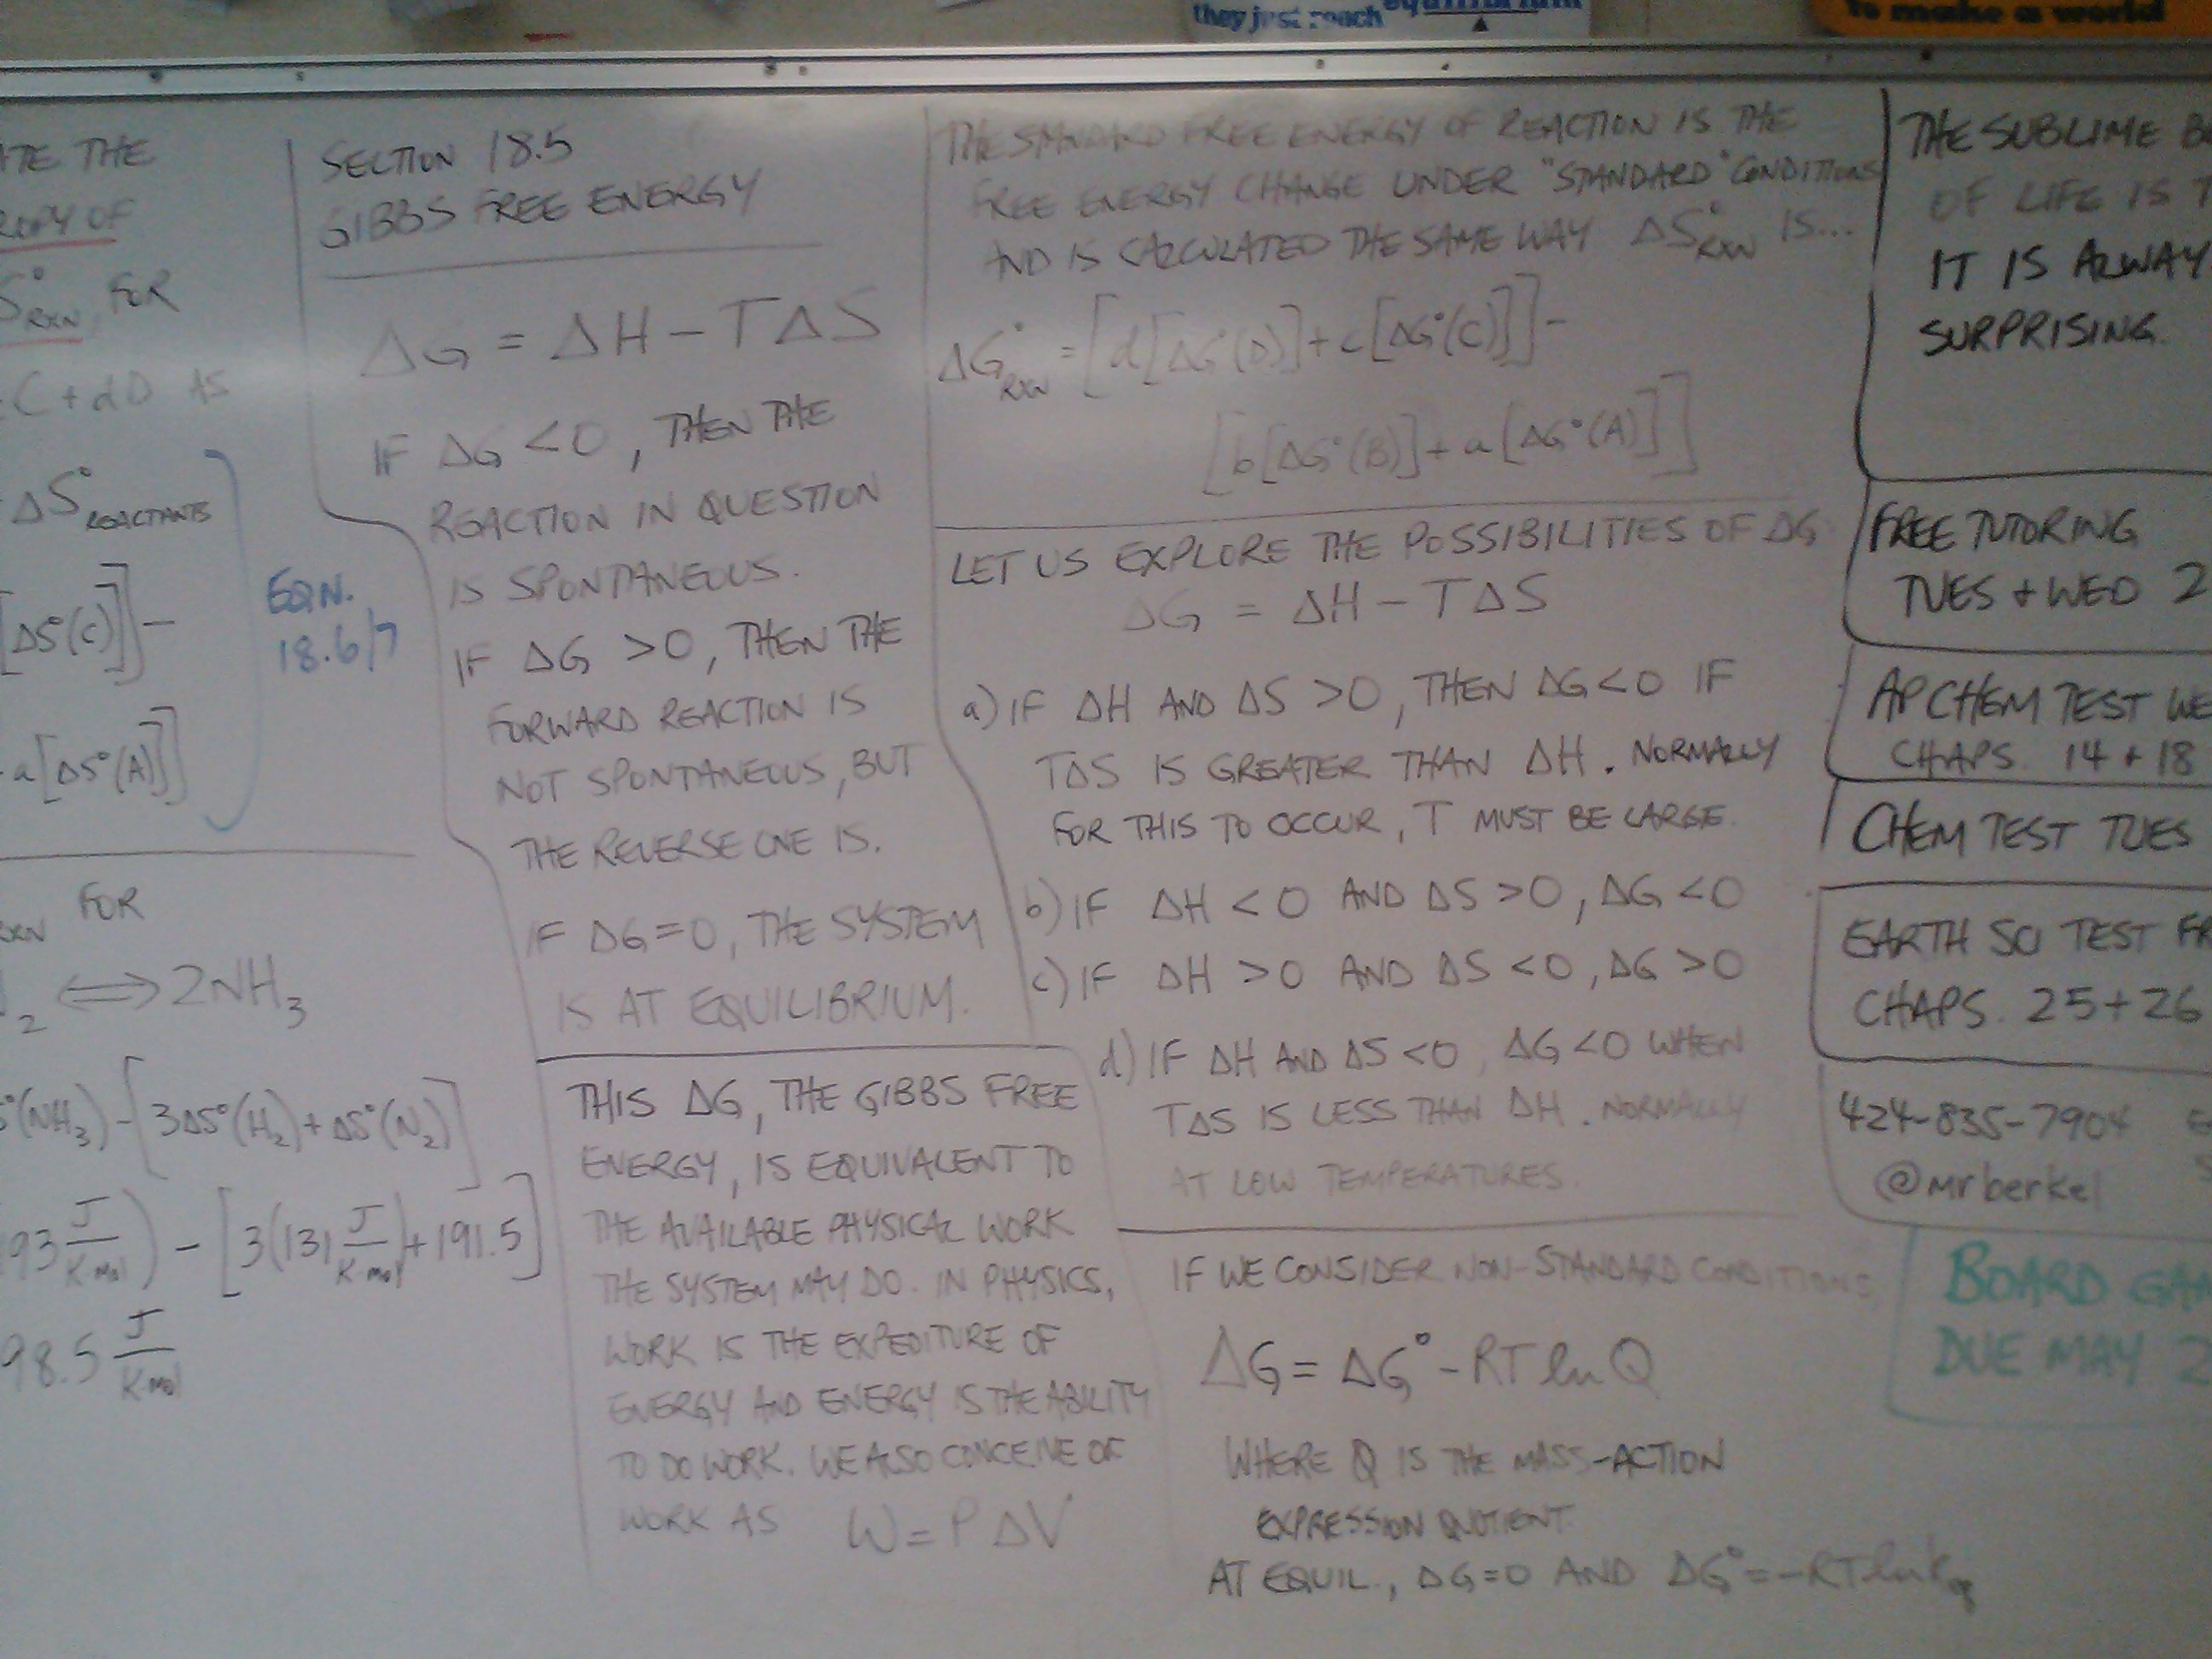 they just reach equilibrium
To make a world
ATE THE
ROPY OF
S°RXN FOR
C + dD AS
ΔS°REACTANTS
[ΔS°(C)]] -
a[ΔS°(A)]]
EQN.
18.6/7
RXN FOR
2 ⟺ 2NH3
S°(NH3) - [3ΔS°(H2) + ΔS°(N2)]
93 J/K·mol) - [3(131 J/K·mol) + 191.5]
98.5 J/K·mol
SECTION 18.5
GIBBS FREE ENERGY
ΔG = ΔH - TΔS
IF ΔG < 0, THEN THE
REACTION IN QUESTION
IS SPONTANEOUS.
IF ΔG > 0, THEN THE
FORWARD REACTION IS
NOT SPONTANEOUS, BUT
THE REVERSE ONE IS.
IF ΔG = 0, THE SYSTEM
IS AT EQUILIBRIUM.
THIS ΔG, THE GIBBS FREE
ENERGY, IS EQUIVALENT TO
THE AVAILABLE PHYSICAL WORK
THE SYSTEM MAY DO. IN PHYSICS,
WORK IS THE EXPEDITURE OF
ENERGY AND ENERGY IS THE ABILITY
TO DO WORK. WE ALSO CONCEIVE OF
WORK AS W = PΔV
THE STANDARD FREE ENERGY OF REACTION IS THE
FREE ENERGY CHANGE UNDER "STANDARD" CONDITIONS
AND IS CALCULATED THE SAME WAY ΔS°RXN IS...
ΔG°RXN = [d[ΔG°(D)] + c[ΔG°(C)]] -
[b[ΔG°(B)] + a[ΔG°(A)]]
LET US EXPLORE THE POSSIBILITIES OF ΔG:
ΔG = ΔH - TΔS
a) IF ΔH AND ΔS > 0, THEN ΔG < 0 IF
TΔS IS GREATER THAN ΔH. NORMALLY
FOR THIS TO OCCUR, T MUST BE LARGE.
b) IF ΔH < 0 AND ΔS > 0, ΔG < 0
c) IF ΔH > 0 AND ΔS < 0, ΔG > 0
d) IF ΔH AND ΔS < 0, ΔG < 0 WHEN
TΔS IS LESS THAN ΔH. NORMALLY
AT LOW TEMPERATURES.
IF WE CONSIDER NON-STANDARD CONDITIONS,
ΔG = ΔG° - RT ln Q
WHERE Q IS THE MASS-ACTION
EXPRESSION QUOTIENT.
AT EQUIL., ΔG = 0 AND ΔG° = -RT ln Keq
THE SUBLIME B
OF LIFE IS T
IT IS ALWAY
SURPRISING.
FREE TUTORING
TUES + WED 2
AP CHEM TEST WE
CHAPS. 14 + 18
CHEM TEST TUES
EARTH SCI TEST FR
CHAPS. 25 + 26
424-835-7904
@mrberkel
BOARD GA
DUE MAY 2